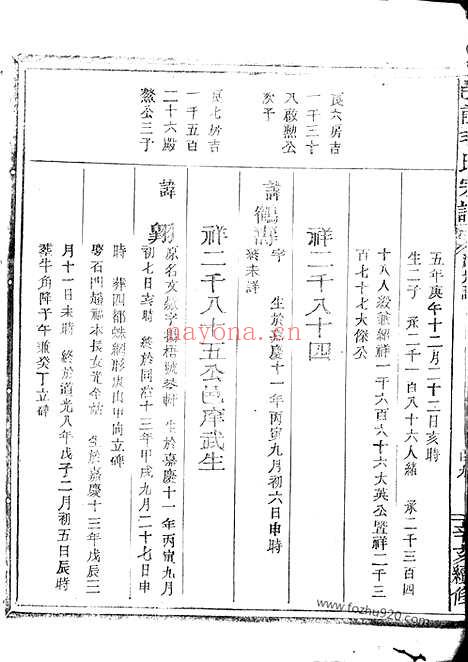 五年庚午十二月二十三日亥時
生二子 承二千一百八十六人緒 承二千三百四
十八人級兼紹祥一千六百六十六大英公暨祥二千三
百七十七大傑公
長六房吉
一千三十
八啟勲公
次子
祥二千八十四
諱
字 生於嘉慶十一年丙寅九月初六日申時
終未詳
長七房吉
一千五百
二十六殿
鰲公三子
祥二千八十五公邑庠武生
諱
原名 字 梧號琴軒 生於嘉慶十一年丙寅九月
初七日亥時 終於同治十三年甲戌九月二十七日申
時 葬四都 形庚山甲向立碑
四 長女 生於嘉慶十三年戊辰二
月十一日未時 終於道光八年戊子二月初五日辰時
葬牛角隆子午兼癸丁立碑
氏宗譜
辛亥續修
nayona.cn
www.fozhu920.com